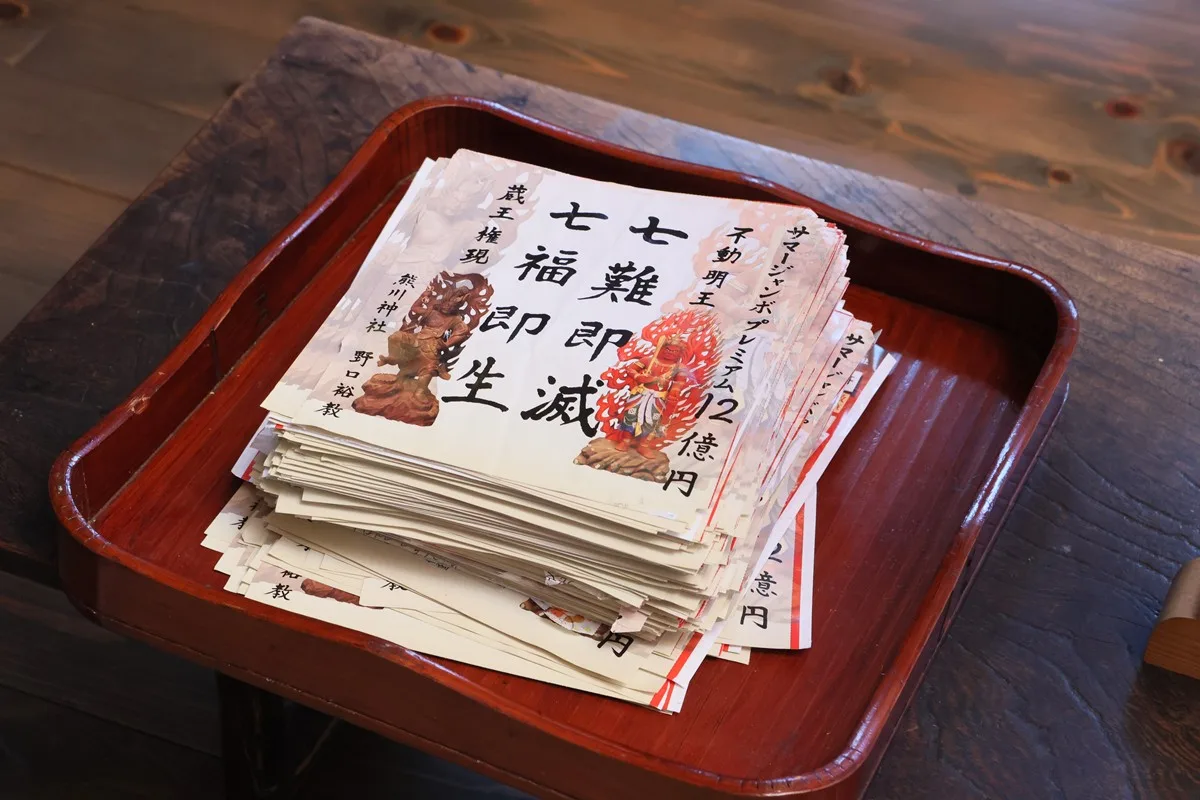 サマージャンボプレミアム12億円
不動明王
七難即滅
七福即生
蔵王権現
熊川神社 野口裕教
サマージャンボ
2億円
円
裕教
教